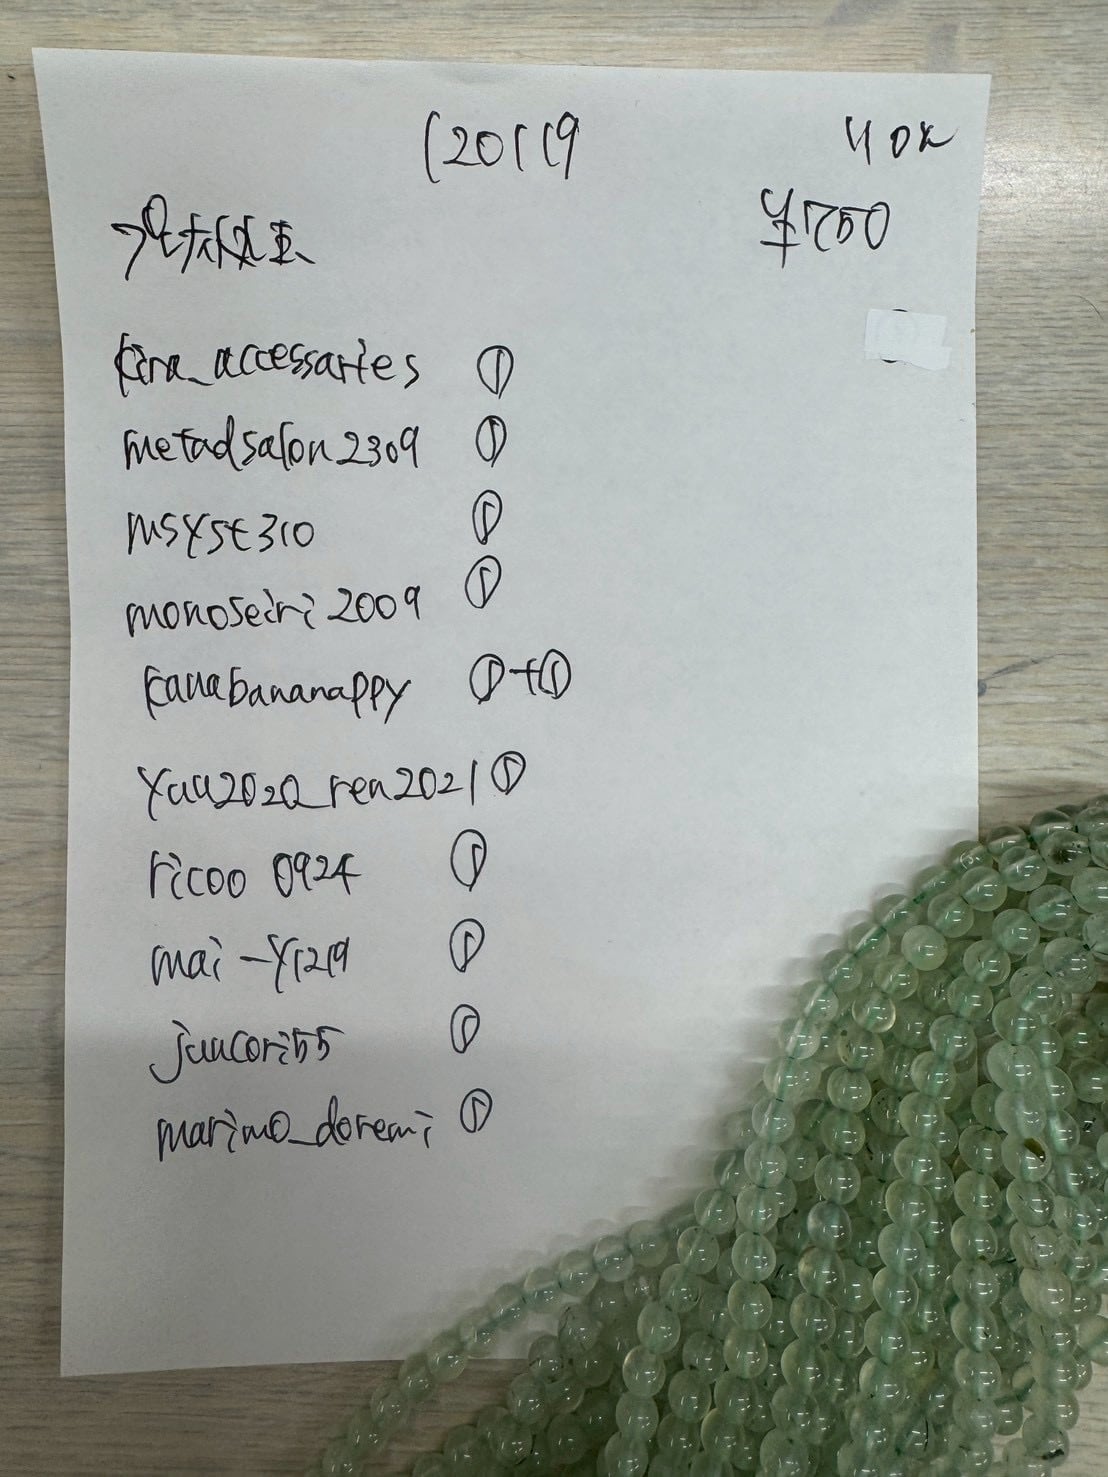 120119
¥750
kira_accessaries ①
metadsalon2309 ①
msyst310 ①
monoseiri2009 ①
kanabananappy ①+①
yuu2020_ren2021 ①
ricoo 0924 ①
mai-y1219 ①
juucori55 ①
marimo_doremi ①